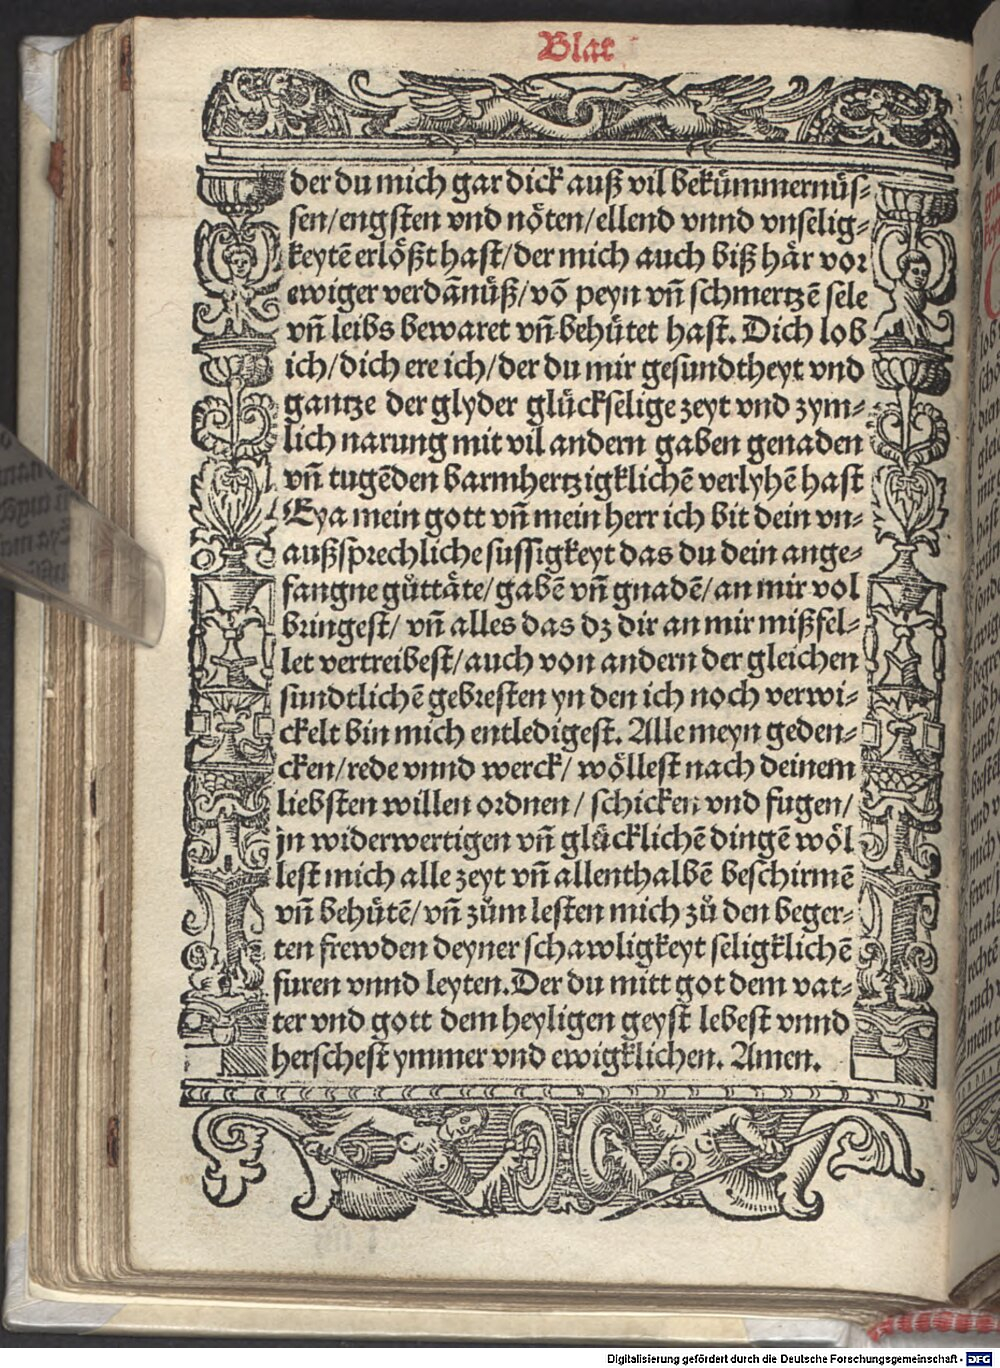 Blat
der du mich gar dick auß vil bekümmernüs⸗
sen/engsten vnd nöten/ellend vnnd vnselig⸗
keytē erlößt hast/der mich auch biß här vor
ewiger verdānüß/vō peyn vn̄ schmertzē sele
vn̄ leibs bewaret vn̄ behütet hast. Dich lob
ich/dich ere ich/der du mir gesundtheyt vnd
gantze der glyder glückselige zeyt vnd zym⸗
lich narung mit vil andern gaben genaden
vn̄ tugēden barmhertzigklichē verlyhē hast
Eya mein gott vn̄ mein herr ich bit dein vn⸗
außsprechliche sussigkeyt das du dein ange⸗
fangne gůttäte/gabē vn̄ gnadē/an mir vol
bringest/ vn̄ alles das dz dir an mir mißfel⸗
let vertreibest/auch von andern der gleichen
sündtlichē gebresten yn den ich noch verwi⸗
ckelt bin mich entledigest. Alle meyn geden⸗
cken/rede vnnd werck/ wöllest nach deinem
liebsten willen ordnen/ schicken vnd fugen/
jn widerwertigen vn̄ glücklichē dingē wöl
lest mich alle zeyt vn̄ allenthalbē beschirmē
vn̄ behütē/vn̄ zům lesten mich zů den beger⸗
ten frewden deyner schawligkeyt seligklichē
furen vnnd leyten. Der du mitt got dem vat⸗
ter vnd gott dem heyligen geyst lebest vnnd
herschest ymmer vnd ewigklichen. Amen.
Digitalisierung gefördert durch die Deutsche Forschungsgemeinschaft - DFG